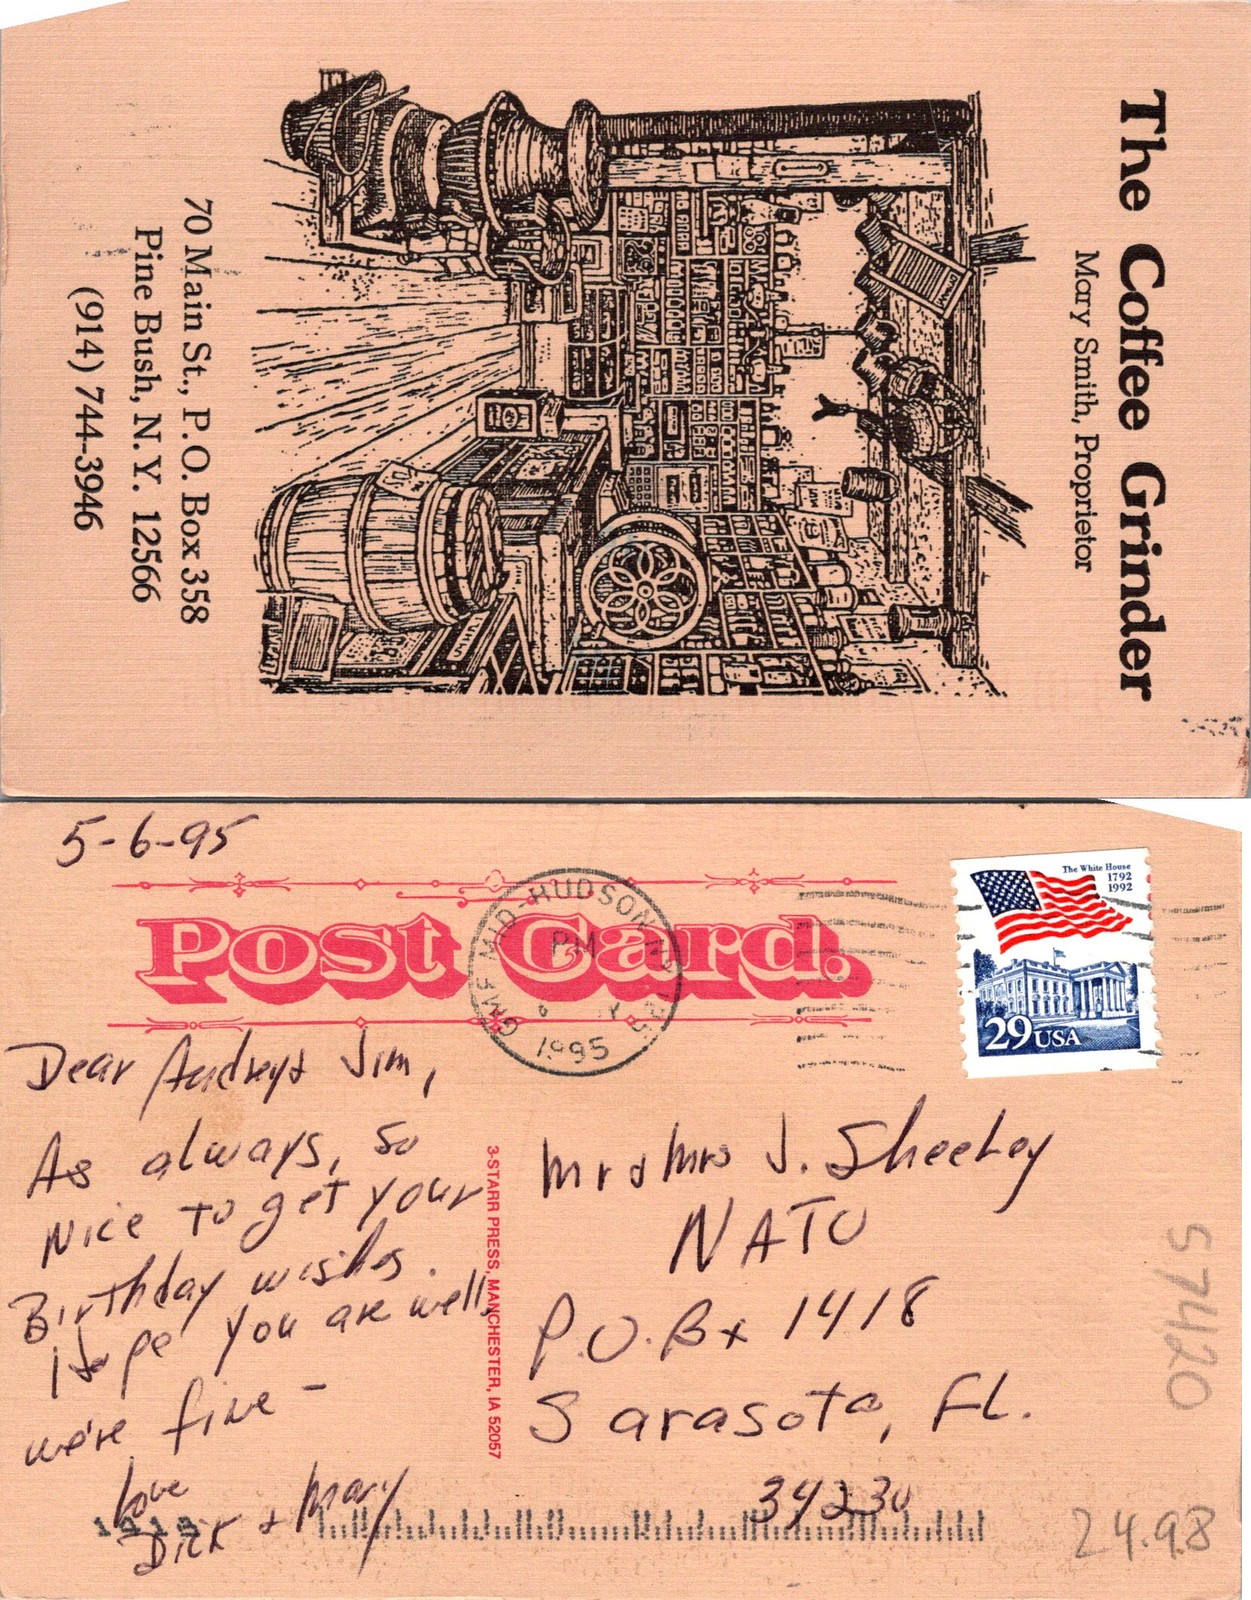 The Coffee Grinder
Mary Smith, Proprietor
70 Main St., P.O. Box 358
Pine Bush, N.Y. 12566
(914) 744-3946
5-6-95
Post Card.
GMF MID-HUDSON NY
PM
1995
The White House
1792
1992
29 USA
Dear Audrey & Jim,
As always, so
nice to get your
Birthday wishes.
Hope you are well,
we're fine –
Love
Dick & Mary
3-STARR PRESS, MANCHESTER, IA 52057
Mr & Mrs J. Sheeley
NATO
P.O. Bx 1418
Sarasota, FL.
34230
57420
24.98